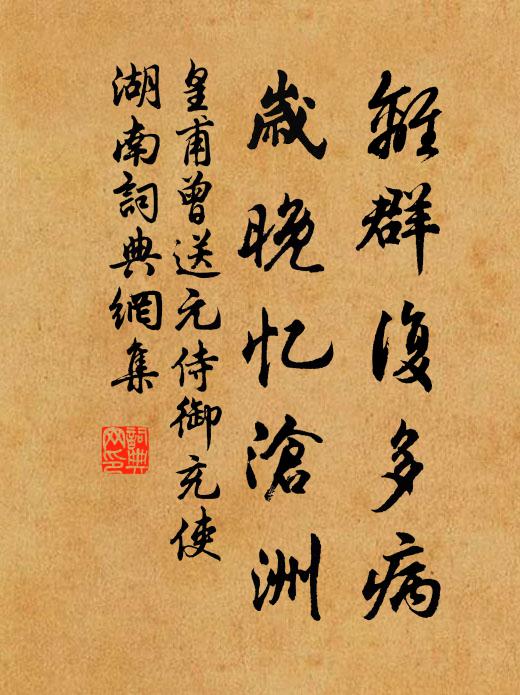 離群復多病
歲晚忆滄洲
皇甫曾送元侍御充使
湖南詞典網集
詞典
网印